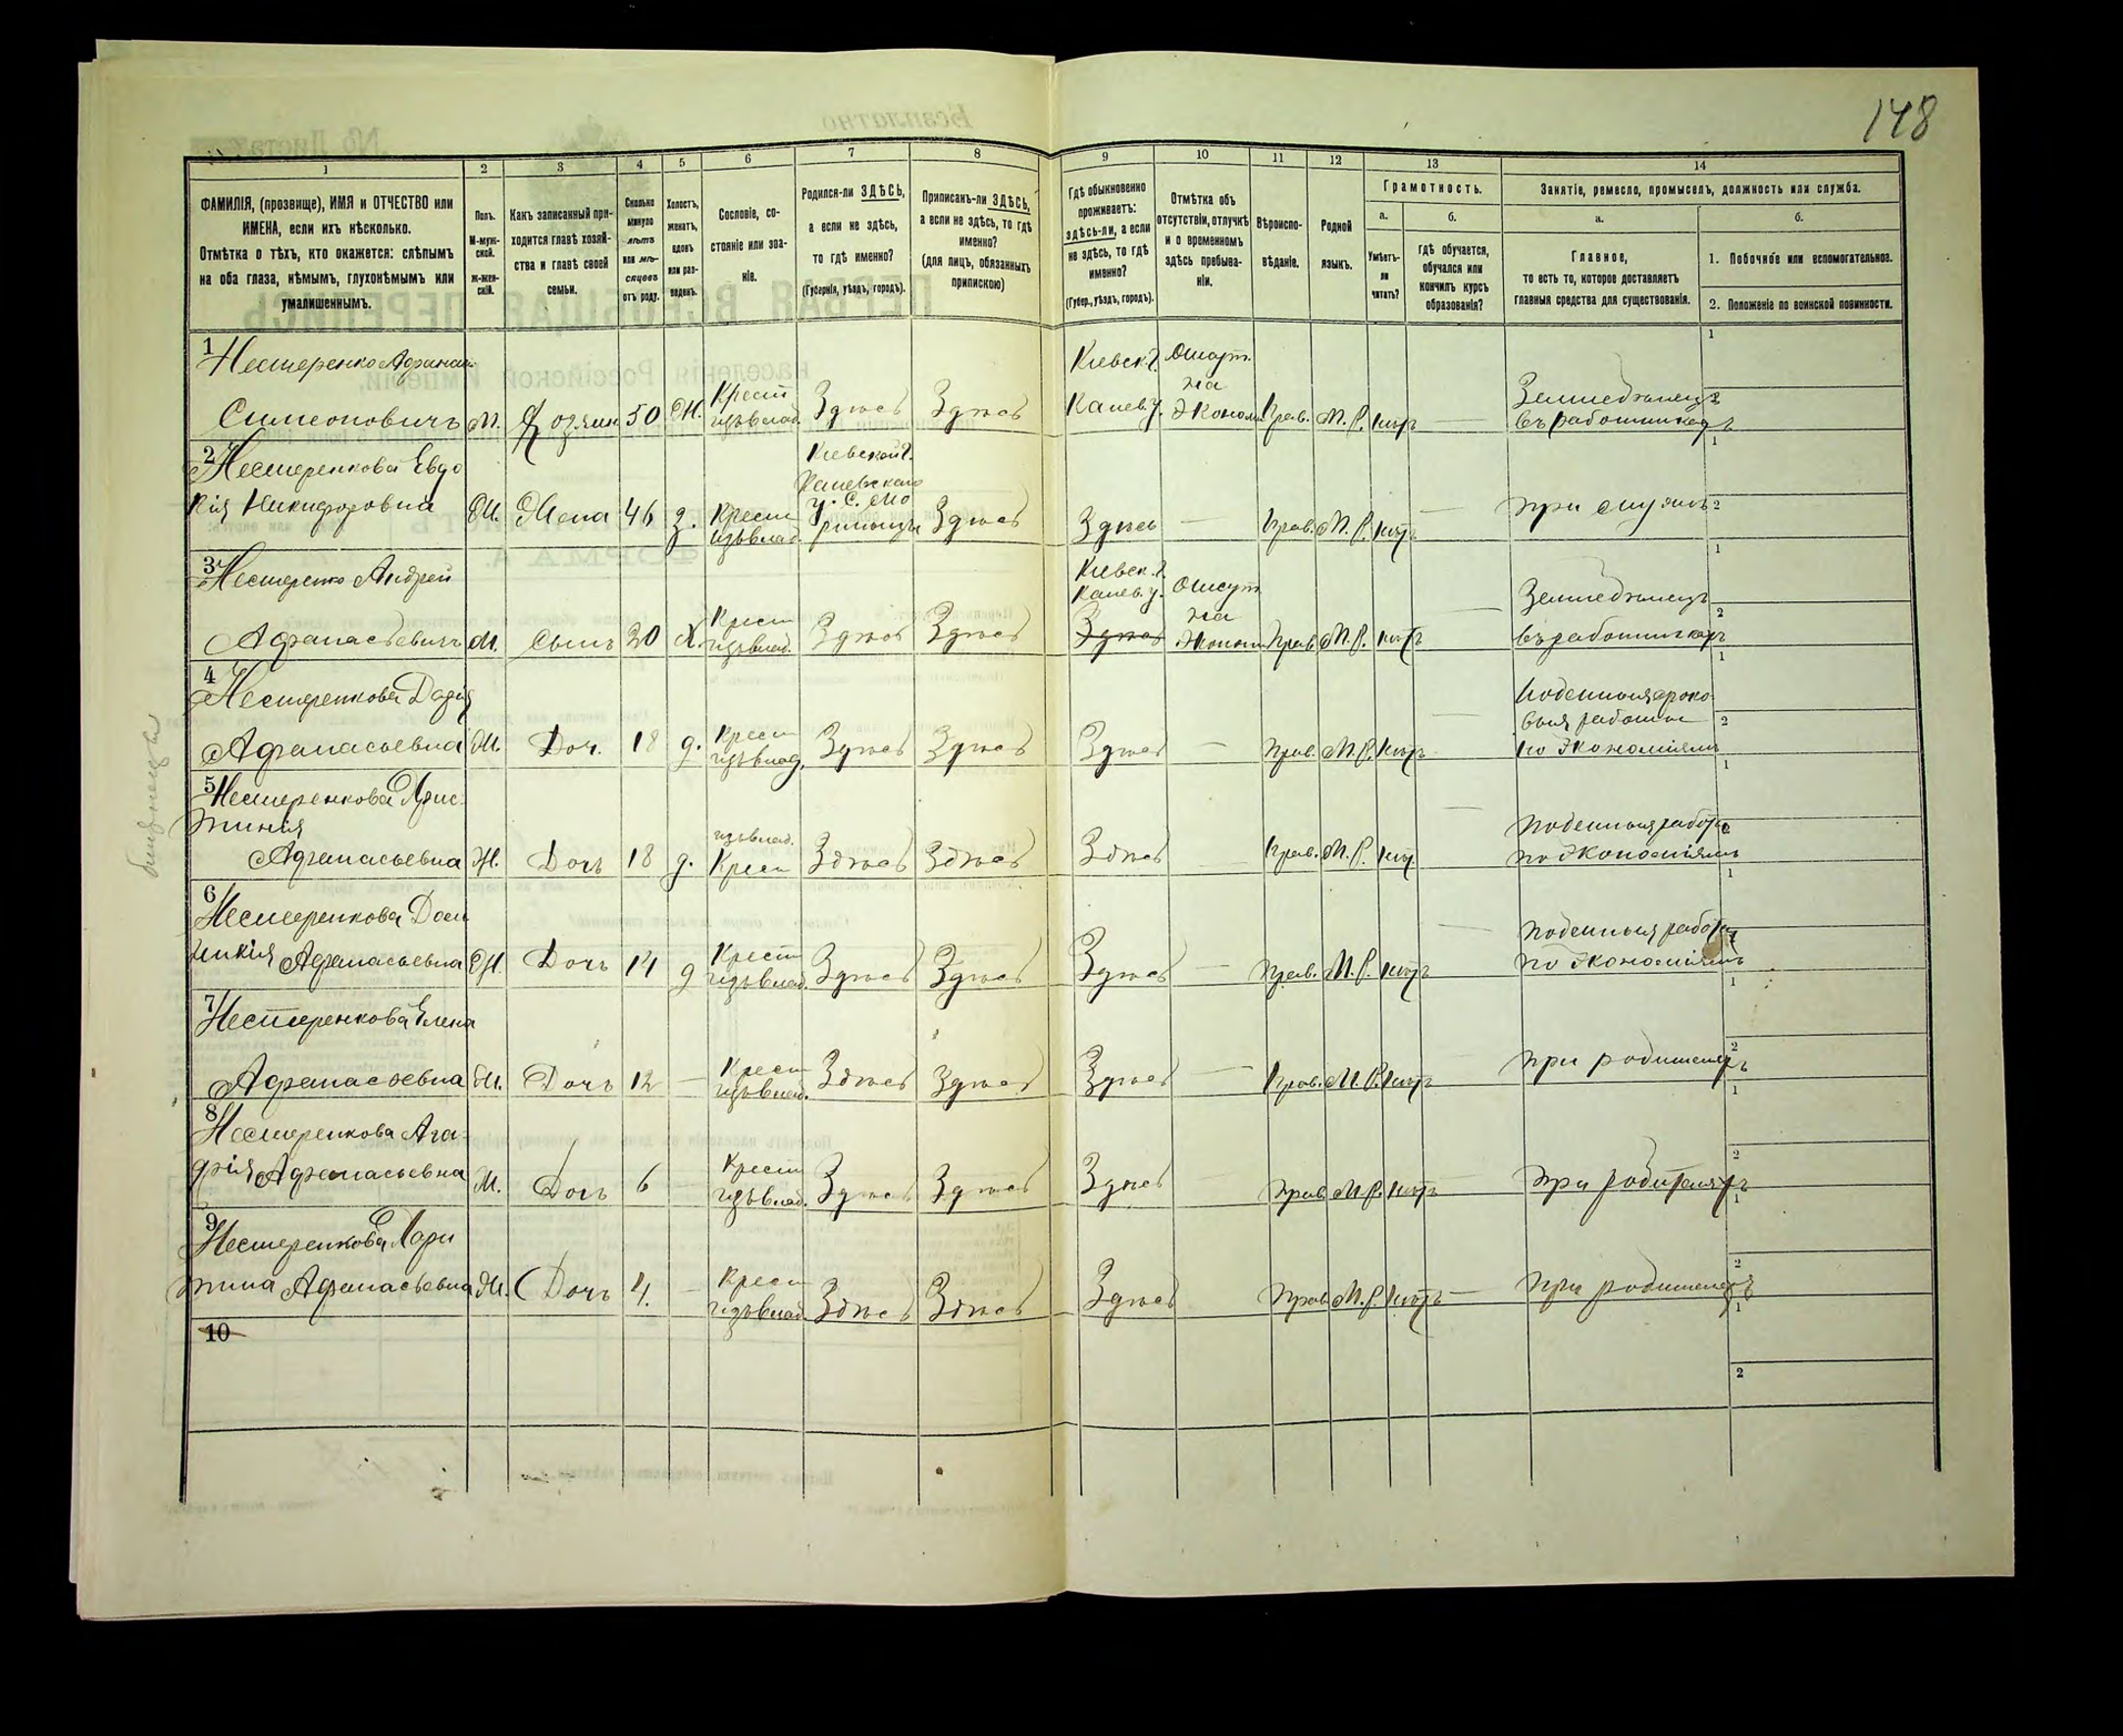 148
1 2 3 4 5 6 7 8 9 10 11 12 13 14
ФАМИЛІЯ, (прозвище), ИМЯ и ОТЧЕСТВО или
ИМЕНА, если ихъ нѣсколько.
Отмѣтка о тѣхъ, кто окажется: слѣпымъ
на оба глаза, нѣмымъ, глухонѣмымъ или
умалишеннымъ.
Полъ.
М-муж-
ской.
ж-жен-
скій.
Какъ записанный при-
ходится главѣ хозяй-
ства и главѣ своей
семьи.
Сколько
минуло
лѣтъ
или мѣ-
сяцевъ
отъ роду.
Холостъ,
женатъ,
вдовъ
или раз-
веденъ.
Сословіе, со-
стояніе или зва-
ніе.
Родился-ли ЗДѢСЬ,
а если не здѣсь,
то гдѣ именно?
(Губернія, уѣздъ, городъ).
Приписанъ-ли ЗДѢСЬ,
а если не здѣсь, то гдѣ
именно?
(для лицъ, обязанныхъ
припискою)
Гдѣ обыкновенно
проживаетъ:
здѣсь-ли, а если
не здѣсь, то гдѣ
именно?
(Губер., уѣздъ, городъ).
Отмѣтка объ
отсутствіи, отлучкѣ
и о временномъ
здѣсь пребыва-
ніи.
Вѣроиспо-
вѣданіе.
Родной
языкъ.
Грамотность.
а.
Умѣетъ-
ли
читать?
б.
Гдѣ обучается,
обучался или
кончилъ курсъ
образованія?
Занятіе, ремесло, промыселъ, должность или служба.
а.
Главное,
то есть то, которое доставляетъ
главныя средства для существованія.
б.
1. Побочное или вспомогательное.
2. Положеніе по воинской повинности.
1 Нестеренко Афанас
Симеоновичъ М. Хозяин 50 Ж. Крест Здѣсь Здѣсь Кіевск. г. Канев. у. Отсут. на Эконом Прав. М. Р. нѣтъ — Земледѣлецъ
въ работникахъ
2 Нестеренкова Евдо
кія Никифоровна Ж. Жена 46 з. Крест Кіевской г. Каневскаго у. С. Здѣсь Здѣсь — Прав. М. Р. нѣтъ — при мужѣ
3 Нестеренко Андрей
Афанасьевичъ М. Сынъ 20 Х. Крест Здѣсь Здѣсь Кіевск. г. Канев. у. Здѣсь Отсут на Эконом Прав М. Р. нѣтъ — Земледѣлецъ
въ работникахъ
4 Нестеренкова Дарія
Афанасьевна Ж. Доч. 18 д. Крест Здѣсь Здѣсь Здѣсь — Прав. М. Р. нѣтъ —
по Экономіямъ
5 Нестеренкова Хрис
тинія
Афанасьевна Ж. Дочь 18 д. Крест Здѣсь Здѣсь Здѣсь Прав. М. Р. нѣт — поденныя работы
по Экономіямъ
6 Нестеренкова Дом
никія Афанасьевна Ж. Дочь 14 д Крест Здѣсь Здѣсь Здѣсь — Прав. М. Р. нѣтъ — поденныя работы
по Экономіямъ
7 Нестеренкова Елена
Афанасьевна Ж. Дочь 12 — Крест Здѣсь Здѣсь Здѣсь — Прав. М. Р. нѣтъ при родителяхъ
8 Нестеренкова Ага-
фія Афанасьевна Дочь 6 — Крест Здѣсь Здѣсь Здѣсь — Прав М. Р. нѣтъ при родителяхъ
9 Нестеренкова
Афанасьевна Ж. Дочь 4. — Крест Здѣсь Здѣсь Здѣсь Прав М. Р. нѣтъ — при родителяхъ
10